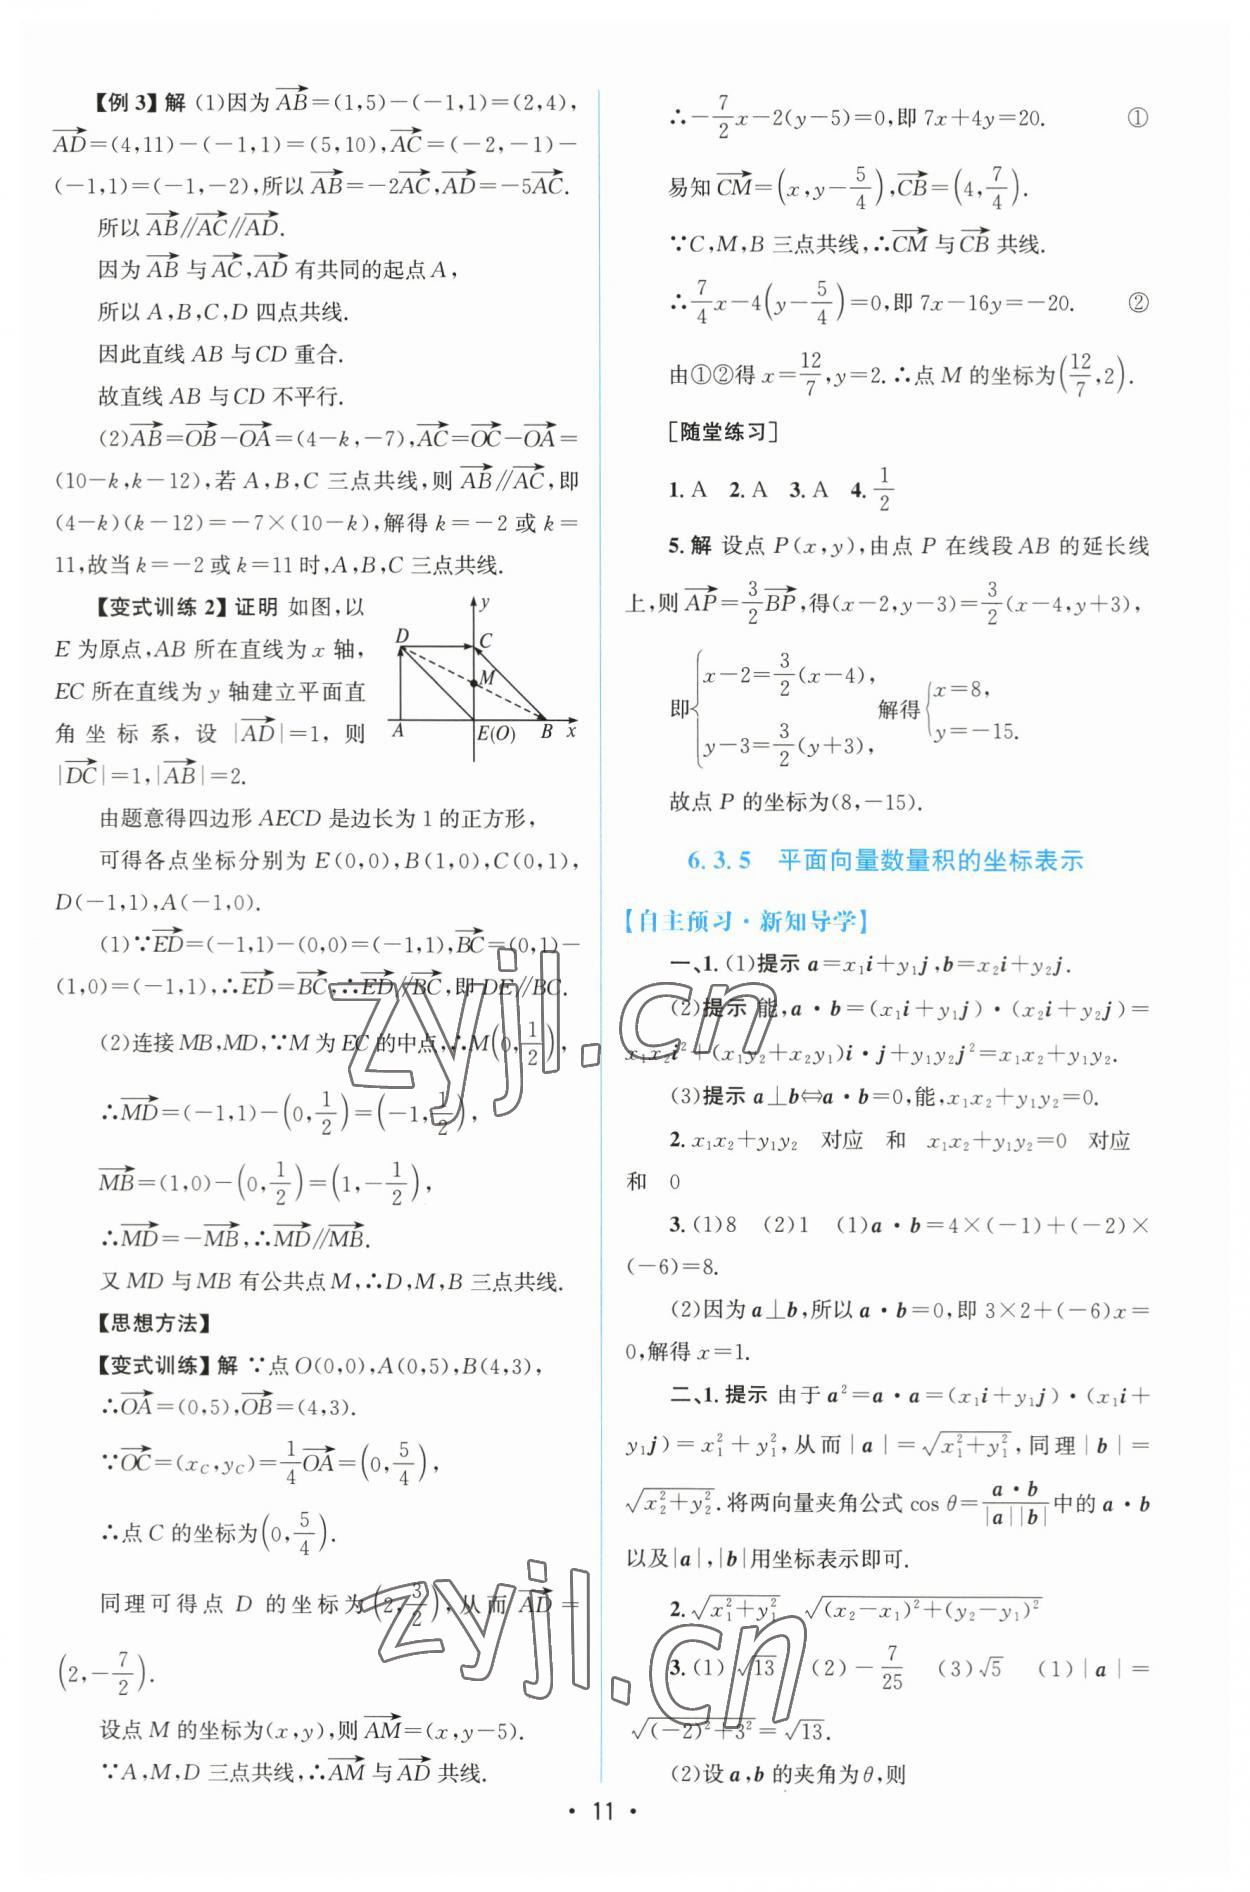 【例3】解 (1)因为 AB→=(1,5)-(-1,1)=(2,4),
AD→=(4,11)-(-1,1)=(5,10),AC→=(-2,-1)-
(-1,1)=(-1,-2),所以 AB→=-2AC→,AD→=-5AC→.
所以 AB→∥AC→∥AD→.
因为 AB→ 与 AC→,AD→ 有共同的起点 A,
所以 A,B,C,D 四点共线.
因此直线 AB 与 CD 重合.
故直线 AB 与 CD 不平行.
(2)AB→=OB→-OA→=(4-k,-7),AC→=OC→-OA→=
(10-k,k-12),若 A,B,C 三点共线,则 AB→∥AC→,即
(4-k)(k-12)=-7×(10-k),解得 k=-2 或 k=
11,故当 k=-2 或 k=11 时,A,B,C 三点共线.
【变式训练2】证明 如图,以
E 为原点,AB 所在直线为 x 轴,
EC 所在直线为 y 轴建立平面直
角坐标系,设 |AD→|=1,则
|DC→|=1,|AB→|=2.
y
D C
M
A E(O) B x
由题意得四边形 AECD 是边长为 1 的正方形,
可得各点坐标分别为 E(0,0),B(1,0),C(0,1),
D(-1,1),A(-1,0).
(1)∵ED→=(-1,1)-(0,0)=(-1,1),BC→=(0,1)-
(1,0)=(-1,1),∴ED→=BC→,∴ED→∥BC→,即 DE∥BC.
(2)连接 MB,MD,∵M 为 EC 的中点,∴M(0,1/2),
∴MD→=(-1,1)-(0,1/2)=(-1,1/2),
MB→=(1,0)-(0,1/2)=(1,-1/2),
∴MD→=-MB→,∴MD→∥MB→.
又 MD 与 MB 有公共点 M,∴D,M,B 三点共线.
【思想方法】
【变式训练】解 ∵点 O(0,0),A(0,5),B(4,3),
∴OA→=(0,5),OB→=(4,3).
∵OC→=(x_C,y_C)=1/4 OA→=(0,5/4),
∴点 C 的坐标为(0,5/4).
同理可得点 D 的坐标为(2,3/2),从而 AD→=
(2,-7/2).
设点 M 的坐标为(x,y),则 AM→=(x,y-5).
∵A,M,D 三点共线,∴AM→ 与 AD→ 共线.
∴-7/2 x-2(y-5)=0,即 7x+4y=20. ①
易知 CM→=(x,y-5/4),CB→=(4,7/4).
∵C,M,B 三点共线,∴CM→ 与 CB→ 共线.
∴7/4 x-4(y-5/4)=0,即 7x-16y=-20. ②
由①②得 x=12/7,y=2.∴点 M 的坐标为(12/7,2).
[随堂练习]
1.A 2.A 3.A 4.1/2
5.解 设点 P(x,y),由点 P 在线段 AB 的延长线
上,则 AP→=3/2 BP→,得(x-2,y-3)=3/2(x-4,y+3),
即{x-2=3/2(x-4), y-3=3/2(y+3), 解得{x=8, y=-15.
故点 P 的坐标为(8,-15).
6.3.5 平面向量数量积的坐标表示
【自主预习·新知导学】
一、1.(1)提示 a=x₁i+y₁j,b=x₂i+y₂j.
(2)提示 能,a·b=(x₁i+y₁j)·(x₂i+y₂j)=
x₁x₂i²+(x₁y₂+x₂y₁)i·j+y₁y₂j²=x₁x₂+y₁y₂.
(3)提示 a⊥b⇔a·b=0,能,x₁x₂+y₁y₂=0.
2.x₁x₂+y₁y₂ 对应 和 x₁x₂+y₁y₂=0 对应
和 0
3.(1)8 (2)1 (1)a·b=4×(-1)+(-2)×
(-6)=8.
(2)因为 a⊥b,所以 a·b=0,即 3×2+(-6)x=
0,解得 x=1.
二、1.提示 由于 a²=a·a=(x₁i+y₁j)·(x₁i+
y₁j)=x₁²+y₁²,从而|a|=√(x₁²+y₁²),同理|b|=
√(x₂²+y₂²).将两向量夹角公式 cos θ=a·b/|a||b| 中的 a·b
以及|a|,|b|用坐标表示即可.
2.√(x₁²+y₁²) √((x₂-x₁)²+(y₂-y₁)²)
3.(1)√13 (2)-7/25 (3)√5 (1)|a|=
√((-2)²+3²)=√13.
(2)设 a,b 的夹角为 θ,则
· 11 ·
zyjl.cn
zyjl.cn